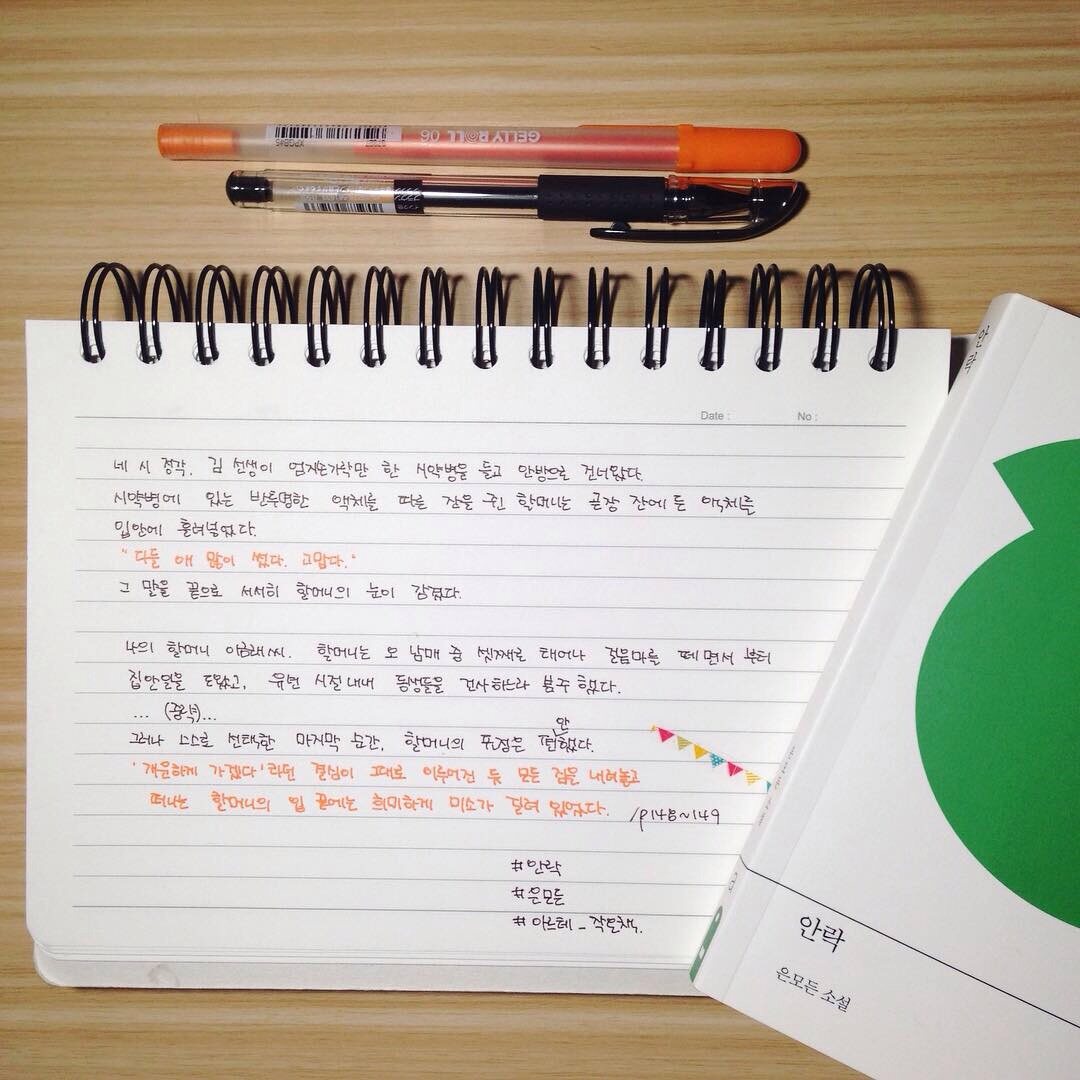 GELLY ROLL 06
XPGB#5
Date :
No :
네 시 정각. 김 선생이 엄지손가락만 한 시약병을 들고 안방으로 건너왔다.
시약병에 있는 반투명한 액체를 따른 잔을 쥔 할머니는 곧장 잔에 든 액체를
입안에 흘려넣었다.
"다들 애 많이 썼다. 고맙다."
그 말을 끝으로 서서히 할머니의 눈이 감겼다.
나의 할머니 이금래씨. 할머니는 오 남매 중 셋째로 태어나 걸음마를 떼면서 부터
집안일을 도왔고, 유년 시절 내내 동생들을 건사하느라 분주 했다.
... (중략)...
그러나 스스로 선택한 마지막 순간, 할머니의 표정은 편안했다.
'개운하게 가겠다'라던 결심이 그대로 이루어진 듯 모든 짐을 내려놓고
떠나는 할머니의 입 끝에는 희미하게 미소가 걸려 있었다. /p148~149
#안락
#은모든
#아르테_작은책.
안락
안락
은모든 소설